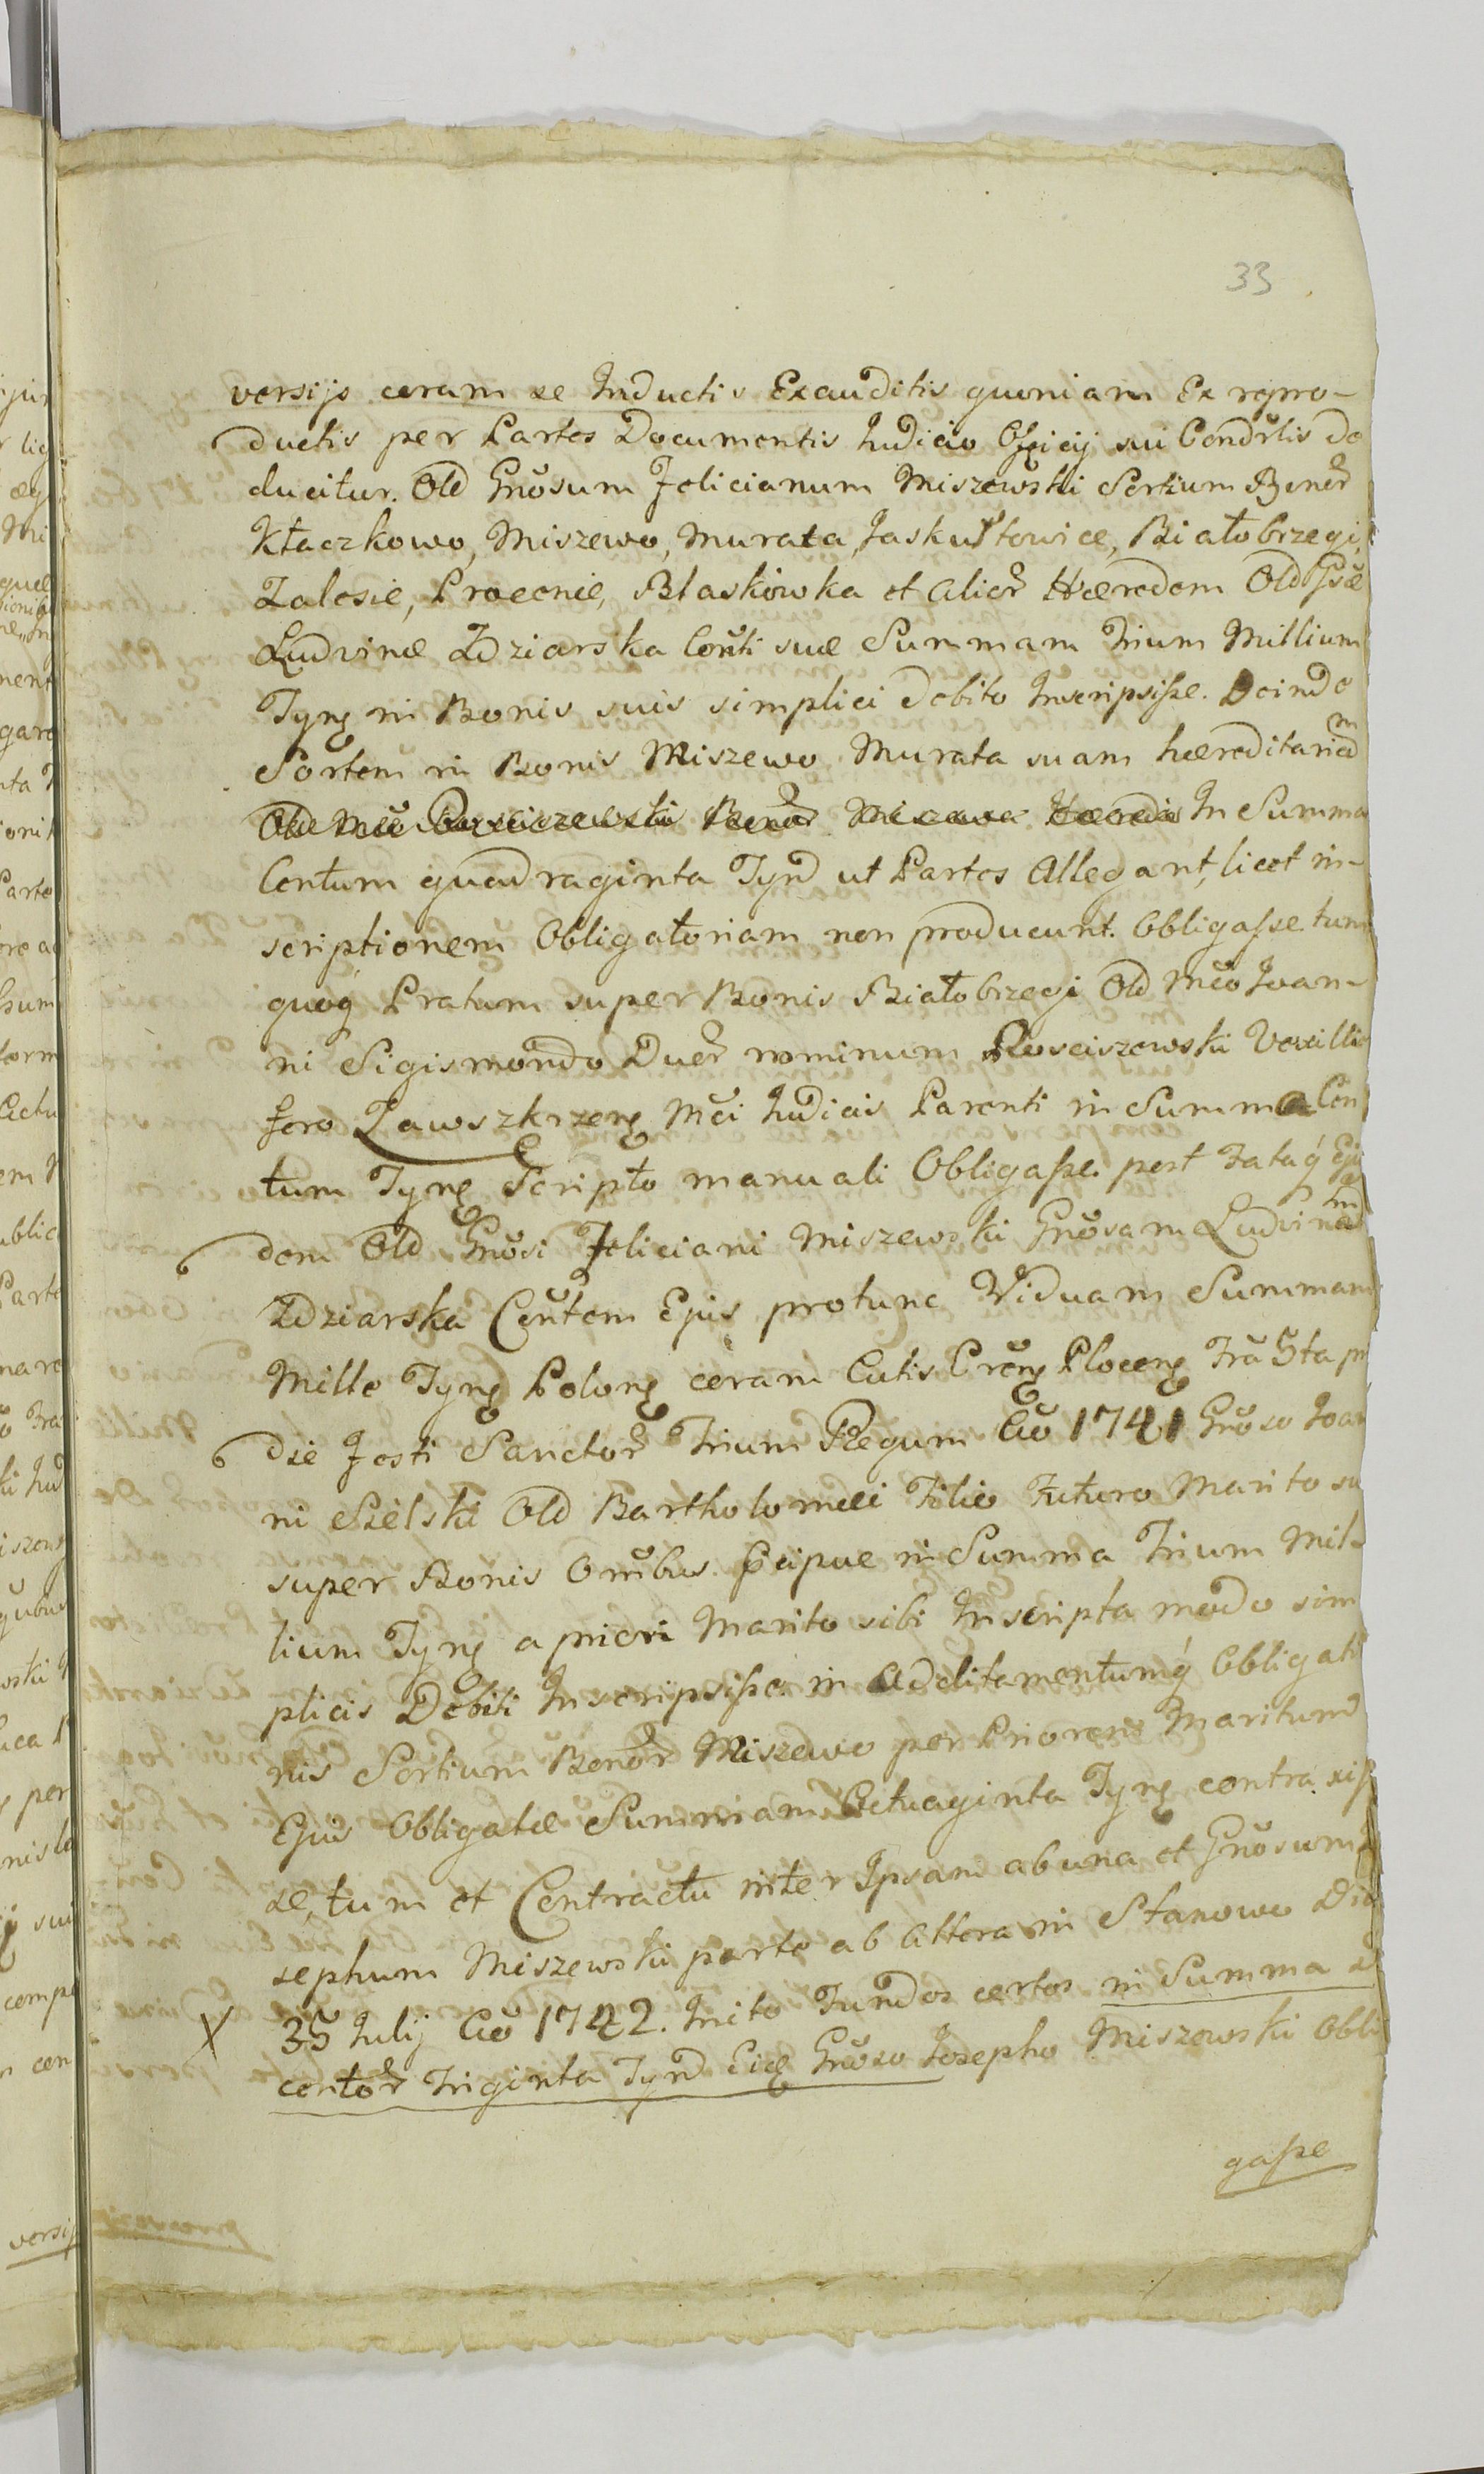 33
versijs coram se Inductis Exauditis quoniam Ex repro-
ductis per Partes Documentis Judicio Officij sui Condrlis de
ducitur. Old Gnosum Felicianum Miszewski Sortium Bonor
Kłaczkowo, Miszewo, Murata, Jaskułtowice, Białobrzegi,
Zalesie, Procenie, Blaskowka et Alior Hæredem Old Gsæ
Ludvinæ Zdziarska Conti suæ Summam Trium Millium
Tynf in Bonis suis simplici debito Inscripsisse. Deinde
Sortem in Bonis Miszewo Murata suam hæreditariam
In Summa
Centum quadraginta Tynf ut Partes Allegant, licet in-
scriptionem Obligatoriam non producunt. Obligasse tum
quoq Pratum super Bonis Białobrzegi Old Mco Joan-
ni Sigismondo Duor nominum Rosciszewski Vexilli
fero Zawszkrzeng Mci Judicis Parenti in Summa Cen
tum Tynf Scripto manuali Obligasse. post Fataq Ejus
dem Old Gnosi Feliciani Miszewski Gnosam Ludvinam
Zdziarska Contem Ejus protunc Viduam Summam
Mille Tynf Polong coram Cutis Crong Ploceng Fra 5ta pr
die Festi Sanctor Trium Regum Ao 1741 Gnoso Joan
ni Sielski Old Bartholomæi Filio Futuro Marito su
super Bonis Omibus pcipue in Summa Trium Mil-
lium Tynf a priori Marito sibi Inscripta modo sim
plicis Debiti Inscripsisse. in Additamentumq Obligati
nis Sortium Bonor Miszewo per Priorem Maritum
Ejus Obligatæ Summam Octuaginta Tynf contraxis
se, tum et Contractu inter Ipsam ab una et Gnosum
sephum Miszewski parte ab Altera in Stanowo Die
X 35 Julij Ao 1742. Inito Fundos certos in Summa
centor Triginta Tynf Eidem Gnoso Josepho Miszewski Obli
gasse